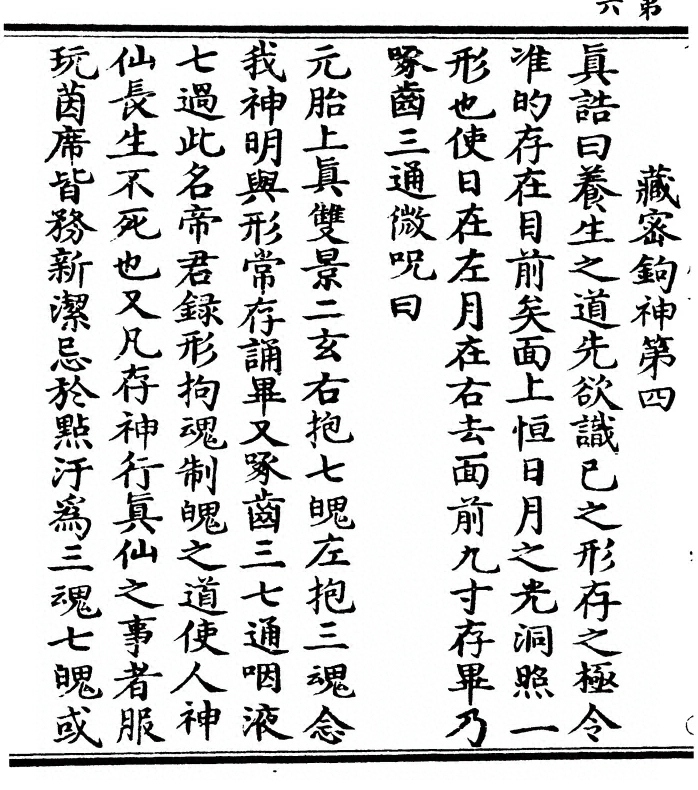 第六
藏密鉤神第四
眞誥曰養生之道先欲識已之形存之極令
准的存在目前矣面上恒日月之光洞照一
形也使日在左月在右去面前九寸存畢乃
啄齒三通微呪曰
元胎上眞雙景二玄右抱七魄左抱三魂念
我神明與形常存誦畢又啄齒三七通咽液
七過此名帝君録形拘魂制魄之道使人神
仙長生不死也又凡存神行眞仙之事者服
玩茵席皆務新潔忌於點汙爲三魂七魄或